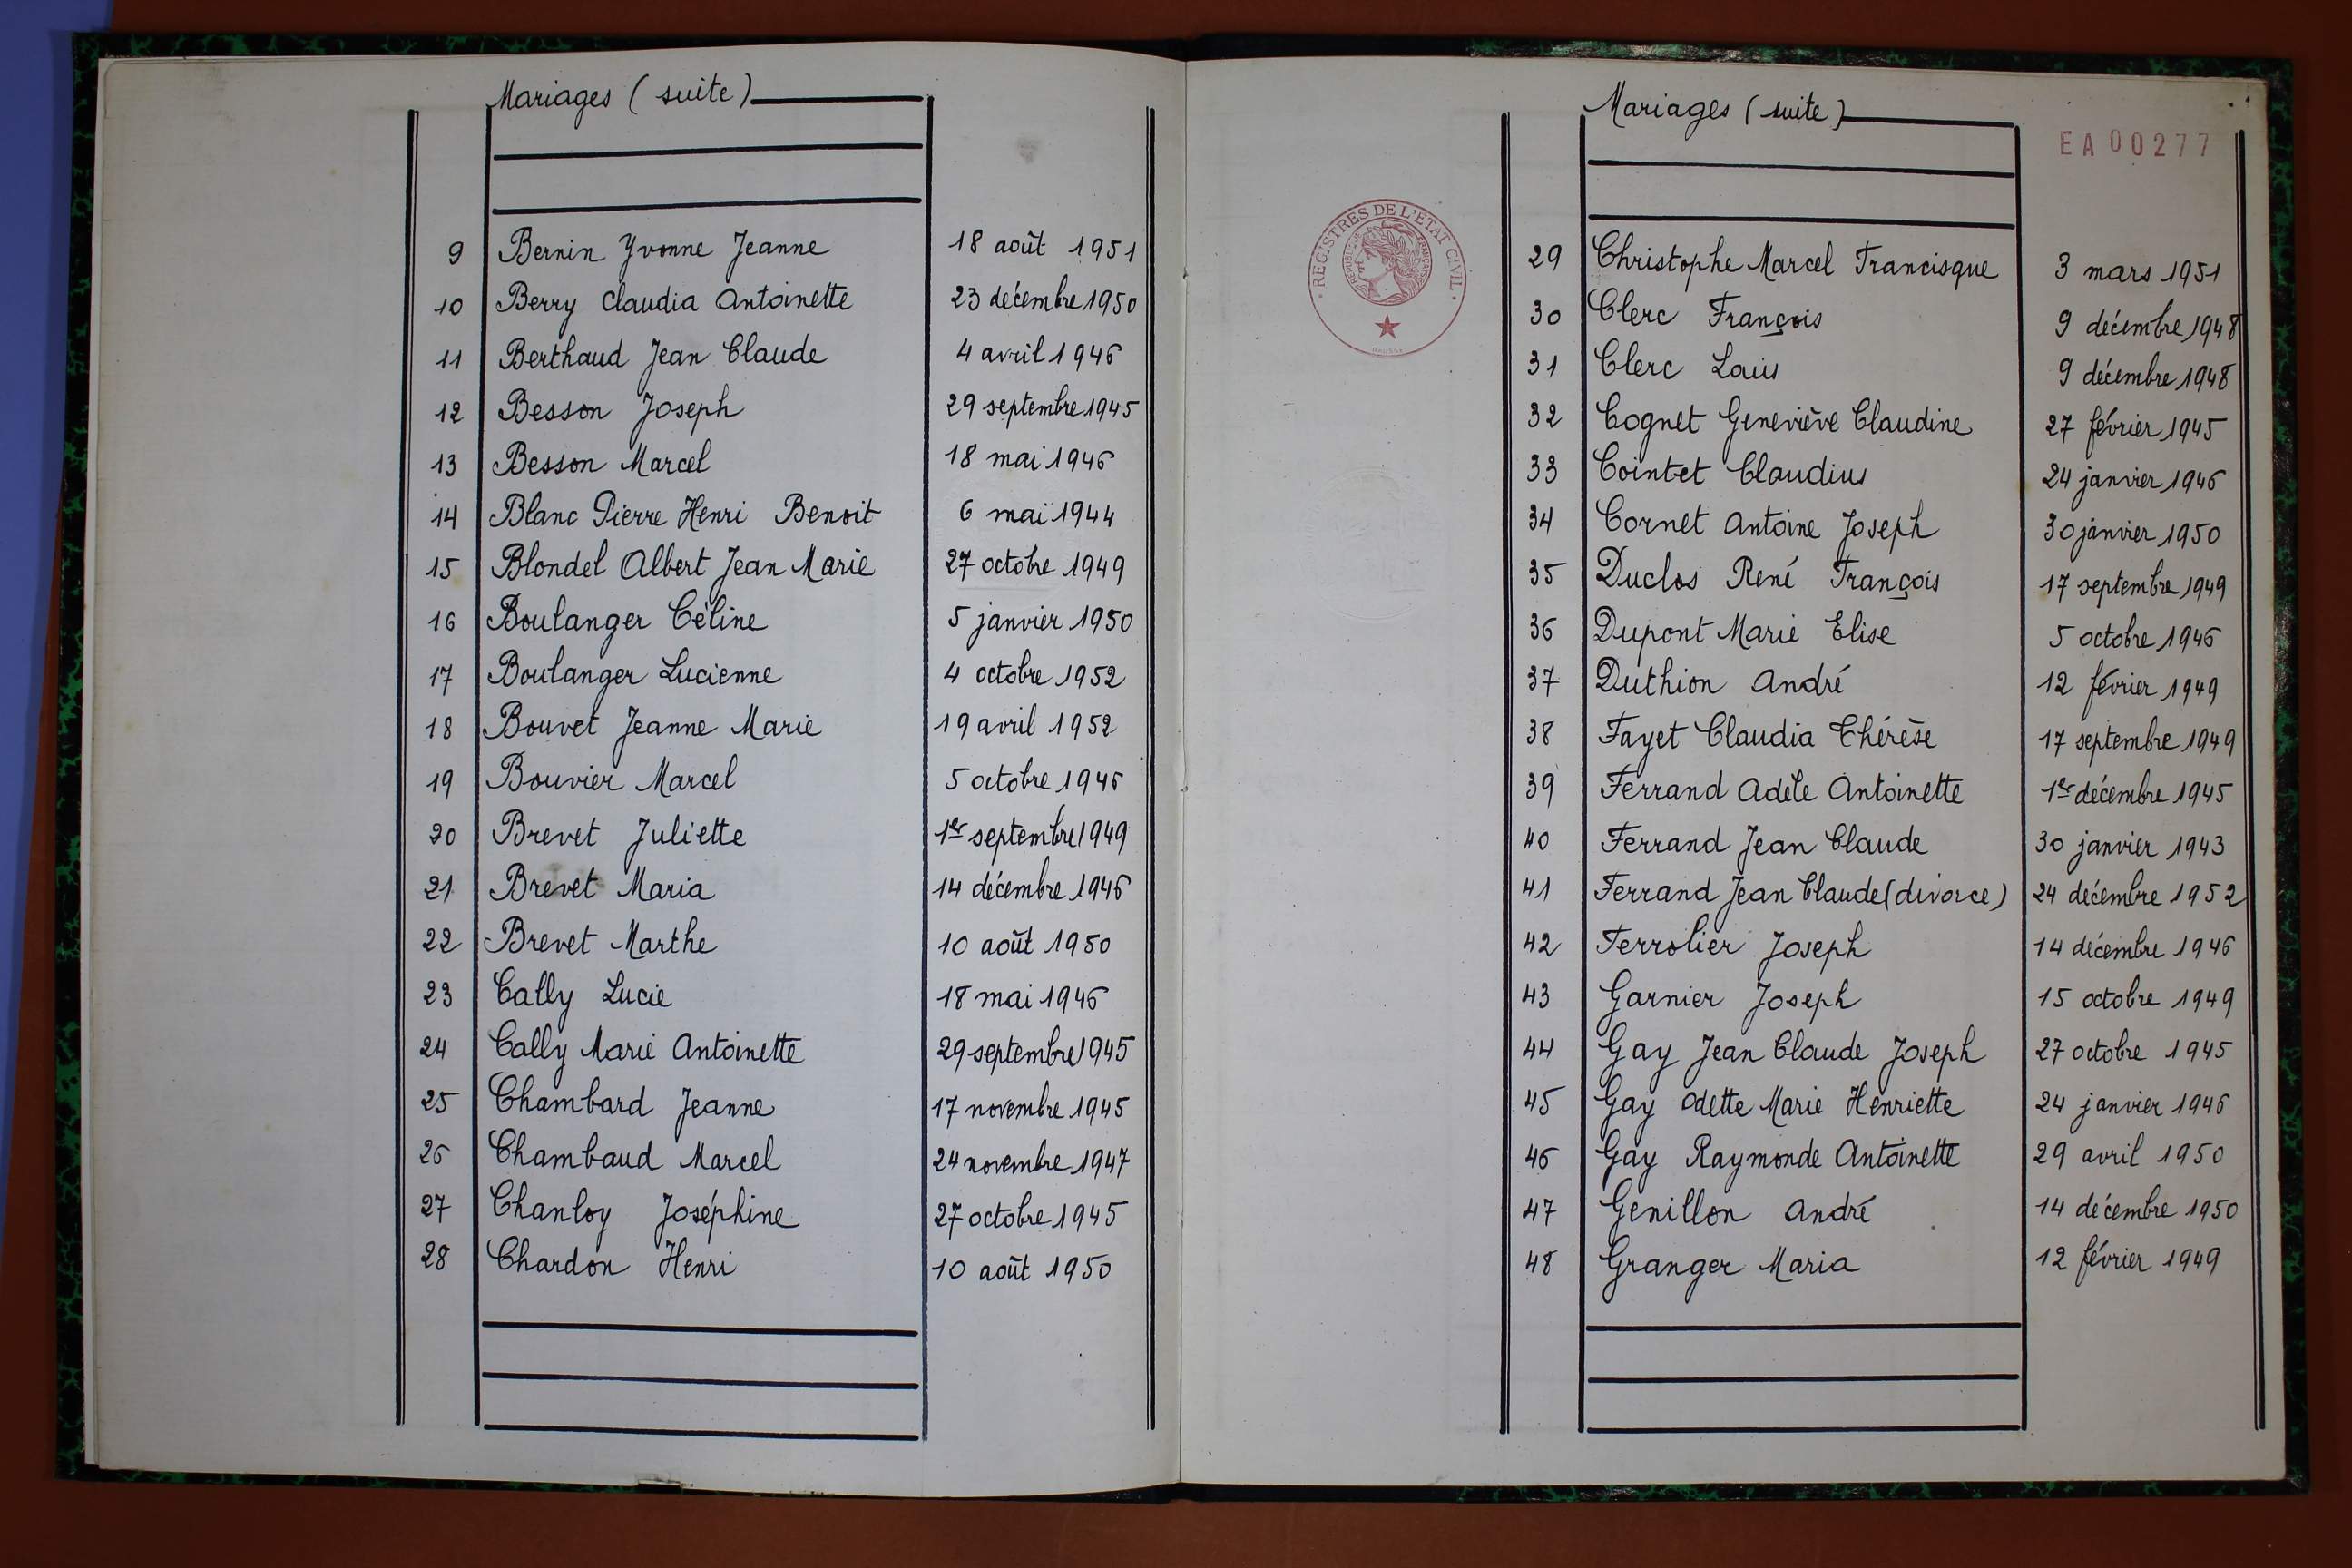 Mariages (suite)
9 Bernin Yvonne Jeanne 18 août 1951
10 Berry Claudia Antoinette 23 décembre 1950
11 Berthaud Jean Claude 4 avril 1946
12 Besson Joseph 29 septembre 1945
13 Besson Marcel 18 mai 1946
14 Blanc Pierre Henri Benoit 6 mai 1944
15 Blondel Albert Jean Marie 27 octobre 1949
16 Boulanger Céline 5 janvier 1950
17 Boulanger Lucienne 4 octobre 1952
18 Bouvet Jeanne Marie 19 avril 1952
19 Bouvier Marcel 5 octobre 1946
20 Brevet Juliette 1er septembre 1949
21 Brevet Maria 14 décembre 1946
22 Brevet Marthe 10 août 1950
23 Cally Lucie 18 mai 1946
24 Cally Marie Antoinette 29 septembre 1945
25 Chambard Jeanne 17 novembre 1945
26 Chambaud Marcel 24 novembre 1947
27 Chanloy Joséphine 27 octobre 1945
28 Chardon Henri 10 août 1950
Mariages (suite)
EA 00277
REGISTRES DE L'ETAT CIVIL
REPUBLIQUE FRANÇAISE
29 Christophe Marcel Francisque 3 mars 1951
30 Clerc François 9 décembre 1948
31 Clerc Louis 9 décembre 1948
32 Cognet Geneviève Claudine 27 février 1945
33 Cointet Claudius 24 janvier 1946
34 Cornet Antoine Joseph 30 janvier 1950
35 Duclos René François 17 septembre 1949
36 Dupont Marie Elise 5 octobre 1946
37 Duthion André 12 février 1949
38 Fayet Claudia Thérèse 17 septembre 1949
39 Ferrand Adèle Antoinette 1er décembre 1945
40 Ferrand Jean Claude 30 janvier 1943
41 Ferrand Jean Claude (divorce) 24 décembre 1952
42 Ferrolier Joseph 14 décembre 1946
43 Garnier Joseph 15 octobre 1949
44 Gay Jean Claude Joseph 27 octobre 1945
45 Gay Odette Marie Henriette 24 janvier 1946
46 Gay Raymonde Antoinette 29 avril 1950
47 Genillon André 14 décembre 1950
48 Granger Maria 12 février 1949